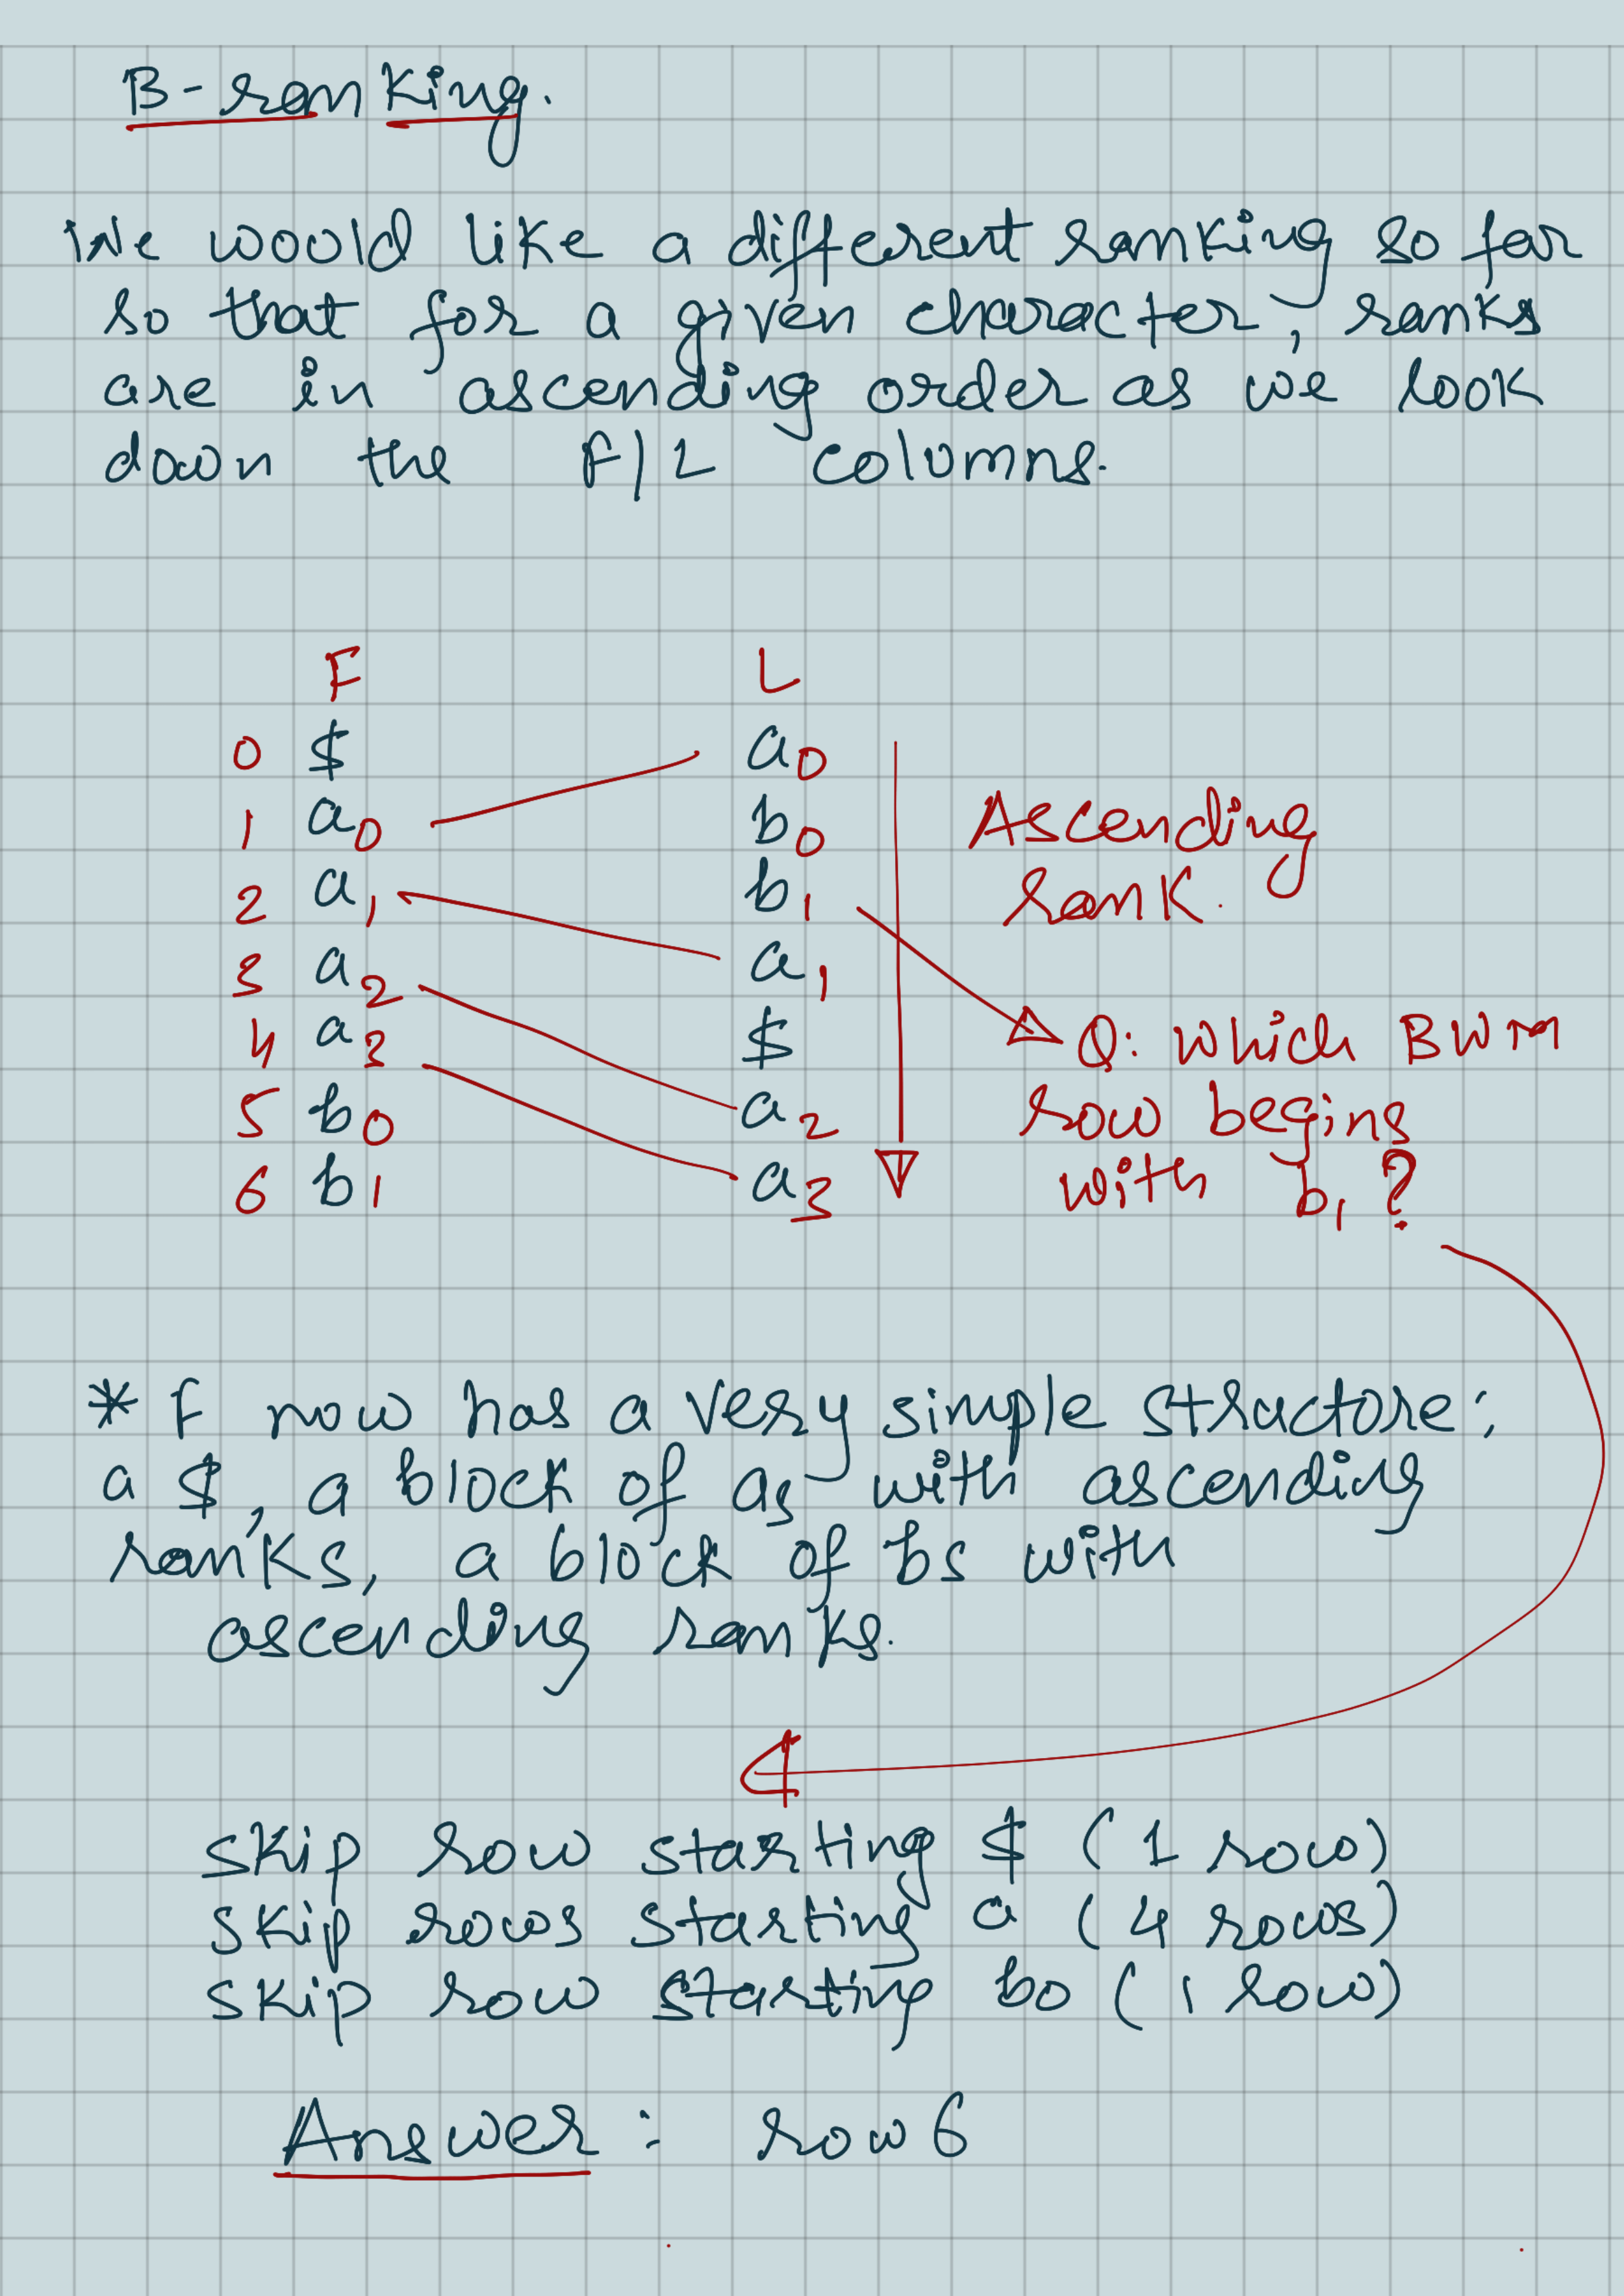 B-ranking.
We would like a different ranking so far
so that for a given character, ranks
are in ascending order as we look
down the F/L columns.
F L
0 $ a0
1 a0 b0 Ascending
2 a1 b1 rank.
3 a2 a1
4 a3 $ Q: Which BWM
5 b0 a2 row begins
6 b1 a3 with b1?
* F now has a very simple structure:
a $, a block of as with ascending
ranks, a block of bs with
ascending ranks.
skip row starting $ (1 row)
skip rows starting a (4 rows)
skip row starting b0 (1 row)
Answer: row 6